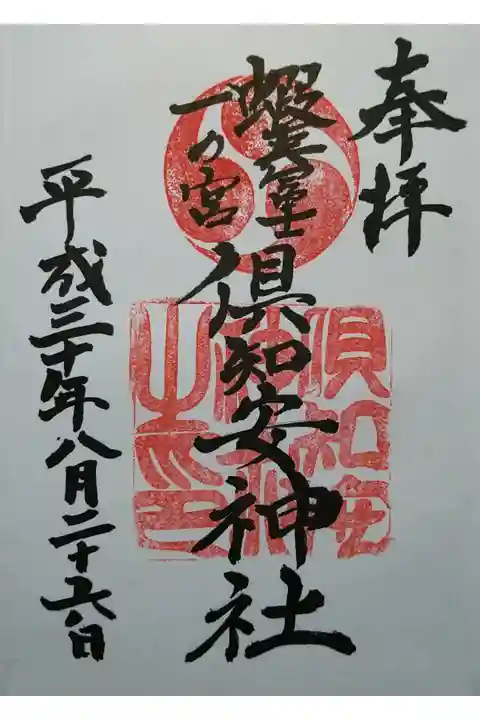 奉拝
蝦夷富士
一乃宮
倶知安神社
平成三十年八月二十六日
倶知安
神社
之印